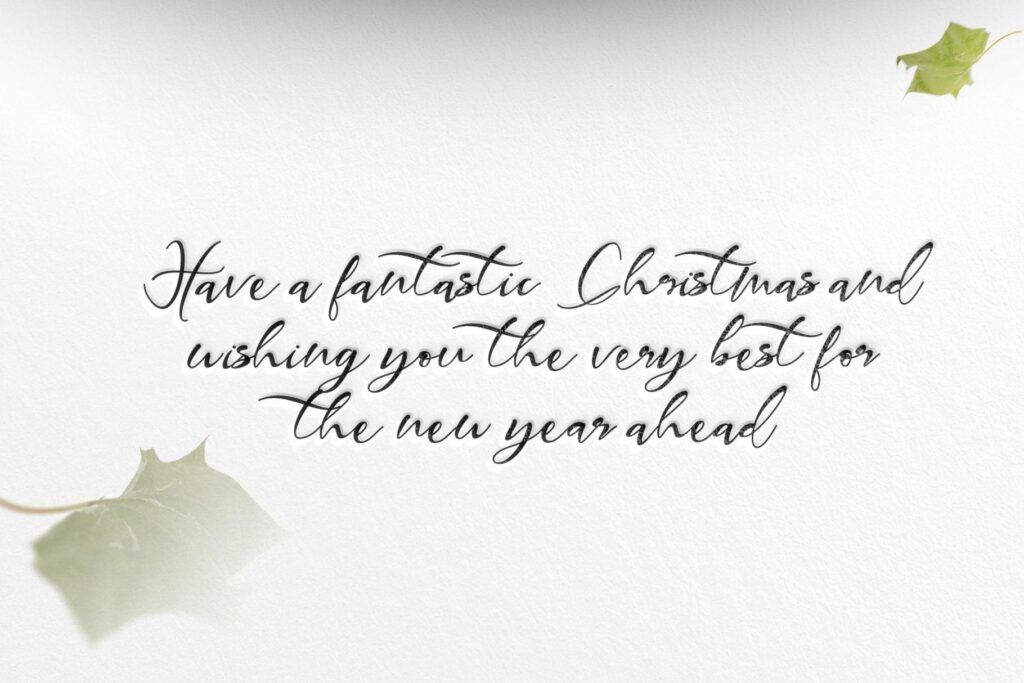 Have a fantastic Christmas and
wishing you the very best for
the new year ahead